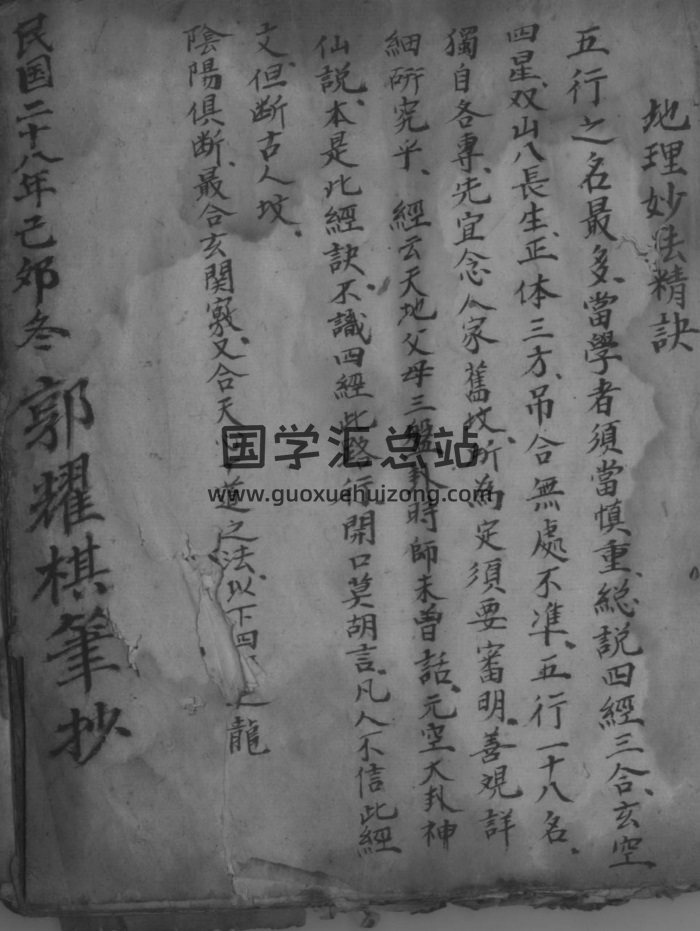 地理妙法精訣
五行之名最多、當學者須當慎重、総説四經三合、玄空
四星、双山八長生、正体三方、吊合無處不準、五行一十八名。
獨自各專、先宜念人家舊坟、所為定須要審明、善观詳
細研究乎、經云天地父母三盤卦時師未曾話、元空大卦神
仙説、本是此經訣、不識四經此路行開口莫胡言、凡人不信此經
文、但断古人坟。
陰陽俱断、最合玄関竅、又合天道之法、以下四龍
民国二十八年己夘冬 郭耀棋筆抄
国学汇总站
www.guoxuehuizong.com